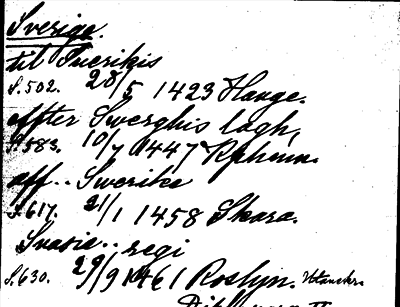 Sverige.
til Suerikis
S.502. 28/5 1423 Hauge.
effter Swerghis lagh,
S.583. 10/7 1447 Kphmn.
aff.. Swerike
S.617. 21/1 1458 Skara.
Suasie.. regi
S.630. 29/9 1461 Roslyn.